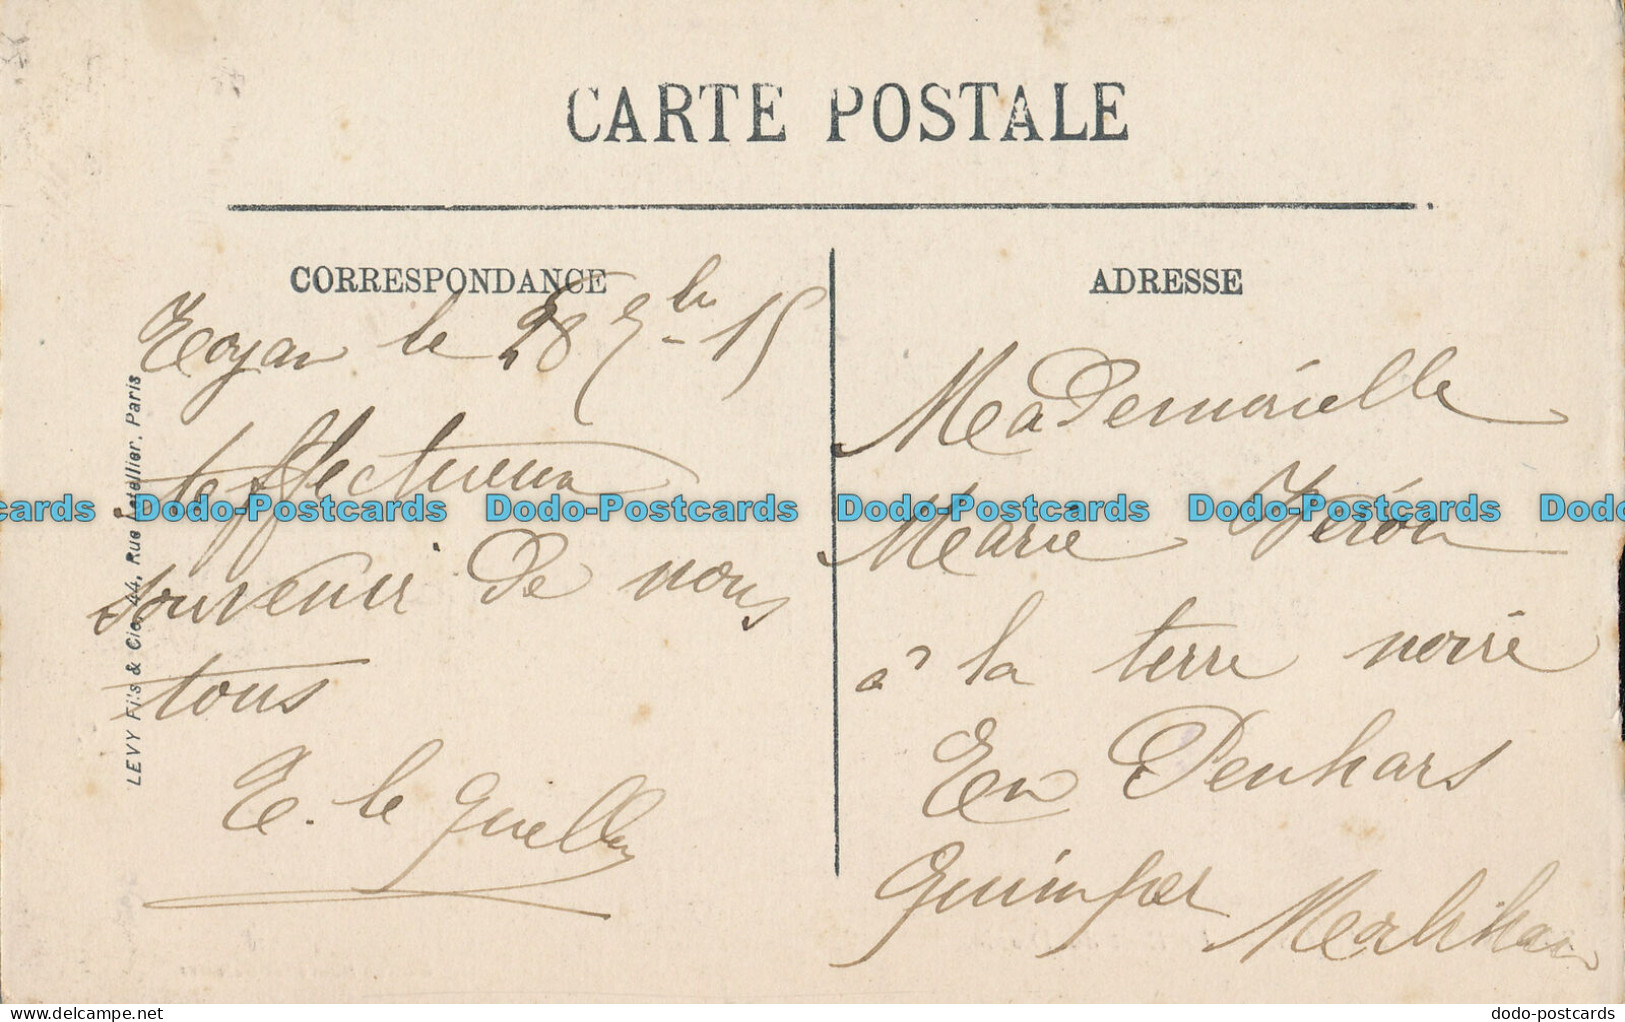 CARTE POSTALE
CORRESPONDANCE
le 28 15
affectueux
souvenir de nous
tous
E. le Guell
LEVY Fils & Cie, 44, Rue Letellier, Paris
ADRESSE
Mademoiselle
Marie
à la terre noire
En Penhars
Quimper
Dodo-Postcards Dodo-Postcards Dodo-Postcards Dodo-Postcards
delcampe.net
dodo-postcards